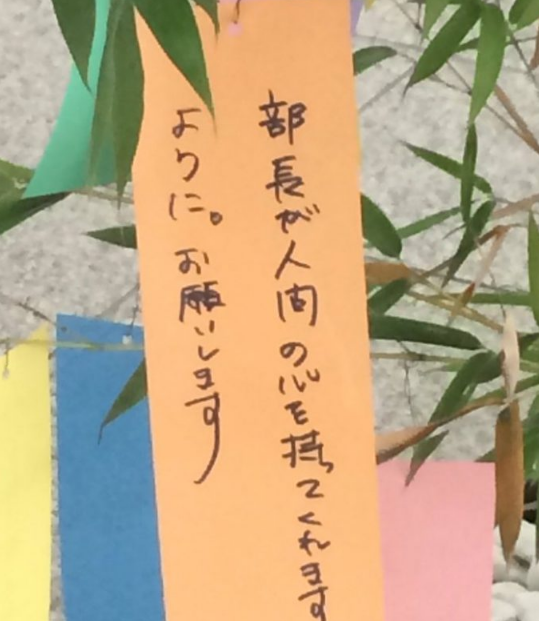 部長が人間の心を持ってくれます
ように。お願いします